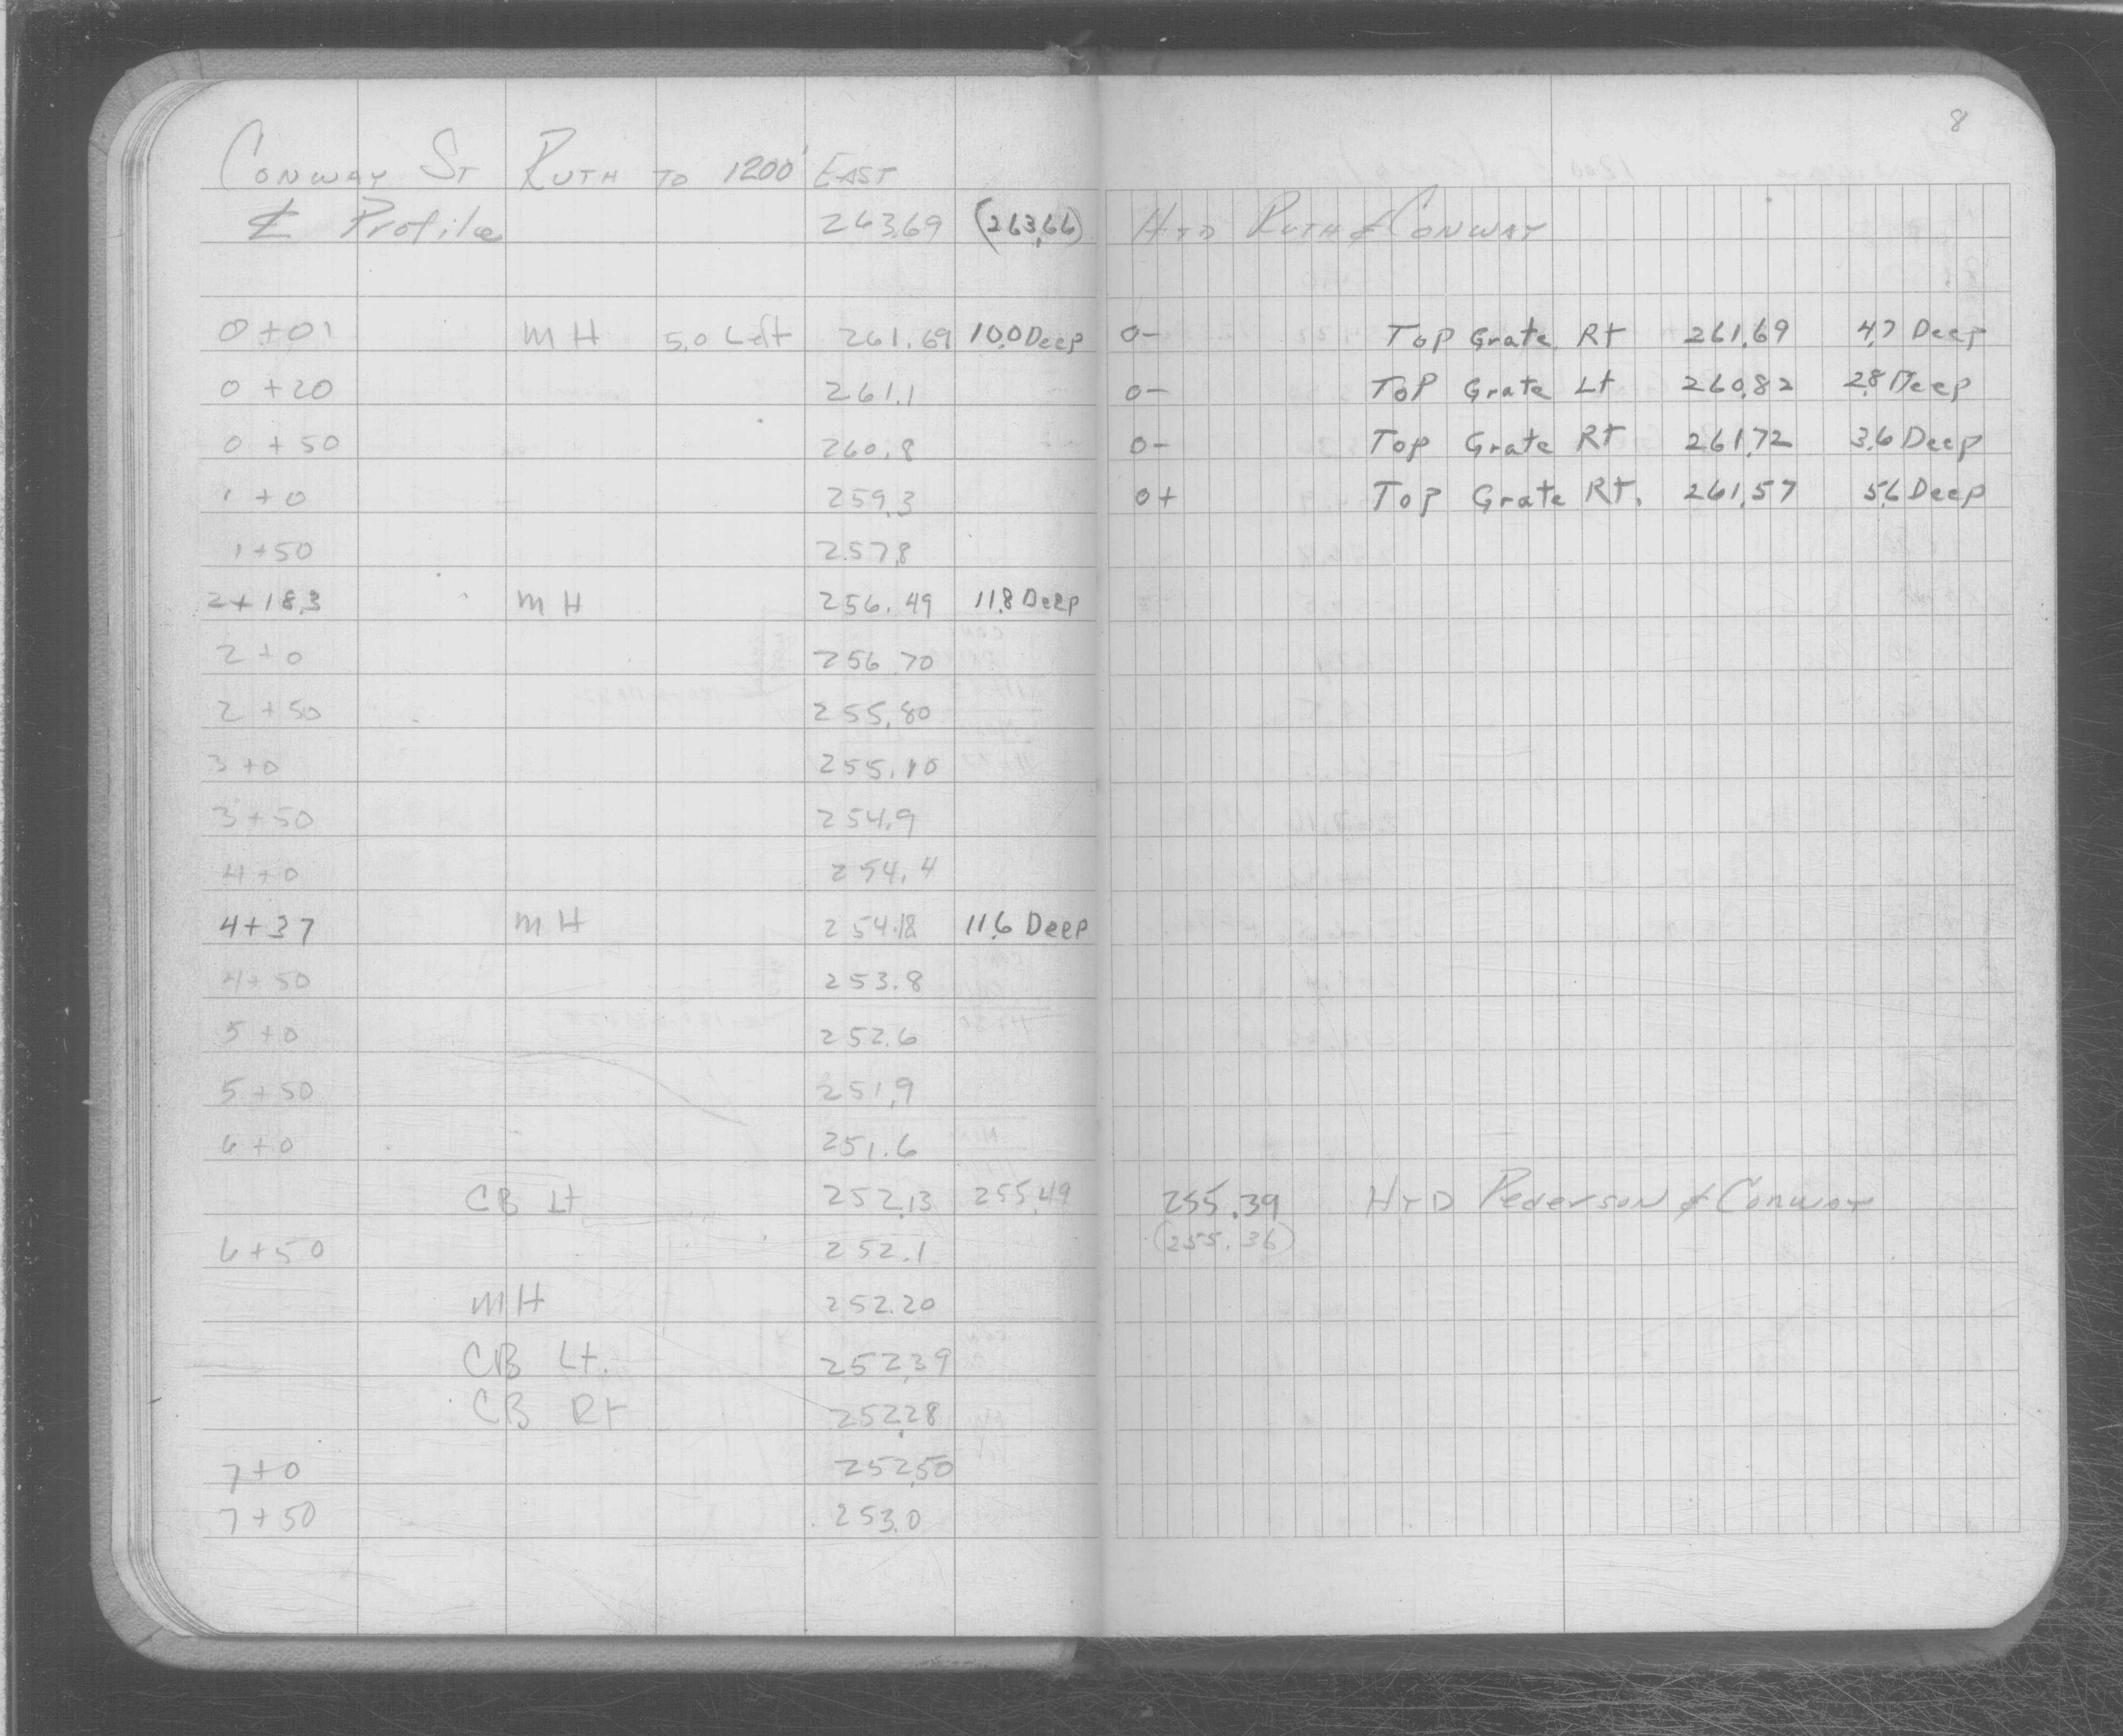 8
CONWAY ST RUTH TO 1200' EAST
℄ Profile 263.69 (263.66) HYD RUTH & CONWAY
0+01 MH 5.0 Left 261.69 10.0 Deep 0- Top Grate Rt 261.69 4.7 Deep
0+20 261.1 0- Top Grate Lt 260.82 2.8 Deep
0+50 260.8 0- Top Grate Rt 261.72 3.6 Deep
1+0 259.3 0+ Top Grate Rt. 261.57 5.6 Deep
1+50 257.8
2+18.3 MH 256.49 11.8 Deep
2+0 256.70
2+50 255.80
3+0 255.10
3+50 254.9
4+0 254.4
4+37 MH 254.18 11.6 Deep
4+50 253.8
5+0 252.6
5+50 251.9
6+0 251.6
CB Lt 252.13 255.49 255.39 HYD Pederson & Conway
6+50 252.1 (255.36)
MH 252.20
CB Lt. 252.39
CB Rt 252.28
7+0 252.50
7+50 253.0